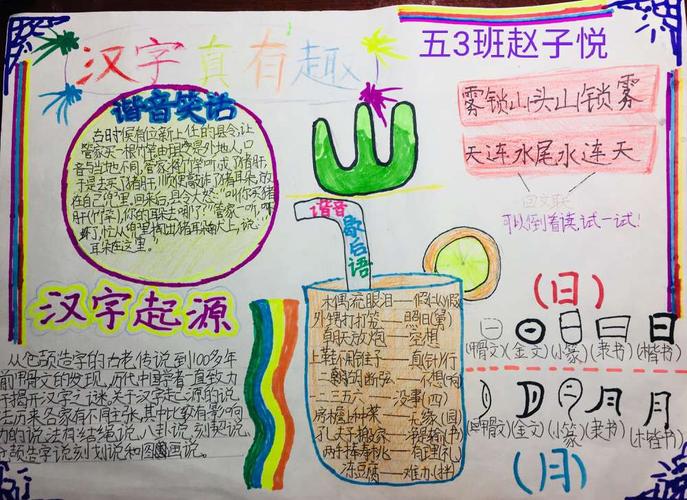 汉字真有趣
五3班赵子悦
谐音笑话
古时候有位新上任的县令,让
管家买一根竹竿,由于是外地人,口
音与当地不同,管家将竹竿听成了猪肝,
于是去买了猪肝,顺便敲诈了猪耳朵,放
在自己
回来后,县令大怒:"叫你买猪
肝(竹竿),你的耳朵去哪了?"管家一听,吓
坏了,忙从
里掏出猪耳朵献上,说:
耳朵在这里。"
雾锁山头山锁雾
天连水尾水连天
回文联
可以倒着读,试一试!
谐音
歇后语
木偶流眼泪——假仁(人)假
外甥打灯笼——照旧(舅)
朝天放炮——空想
上鞋不用锥子——真针)行
——不想(响)
一二三五六——没事(四)
房檐上种菜——无缘(园)
孔夫子搬家——
(书)
两手捧寿桃——有理(礼)
冻豆腐——难办(拌)
汉字起源
从仓颉造字的古老传说到100多年
前甲骨文的发现,历代中国学者一直致力
于揭开汉字之谜。关于汉字起源的说
法历来各家有不同主张,其中比较有影响
力的说法有结绳说、八卦说、刻契说、
仓颉造字说、刻划说和图画说。
(日)
日
(甲骨文)(金文)(小篆)(隶书)(楷书)
月
(甲骨文)(金文)(小篆)(隶书)(楷书)
(月)